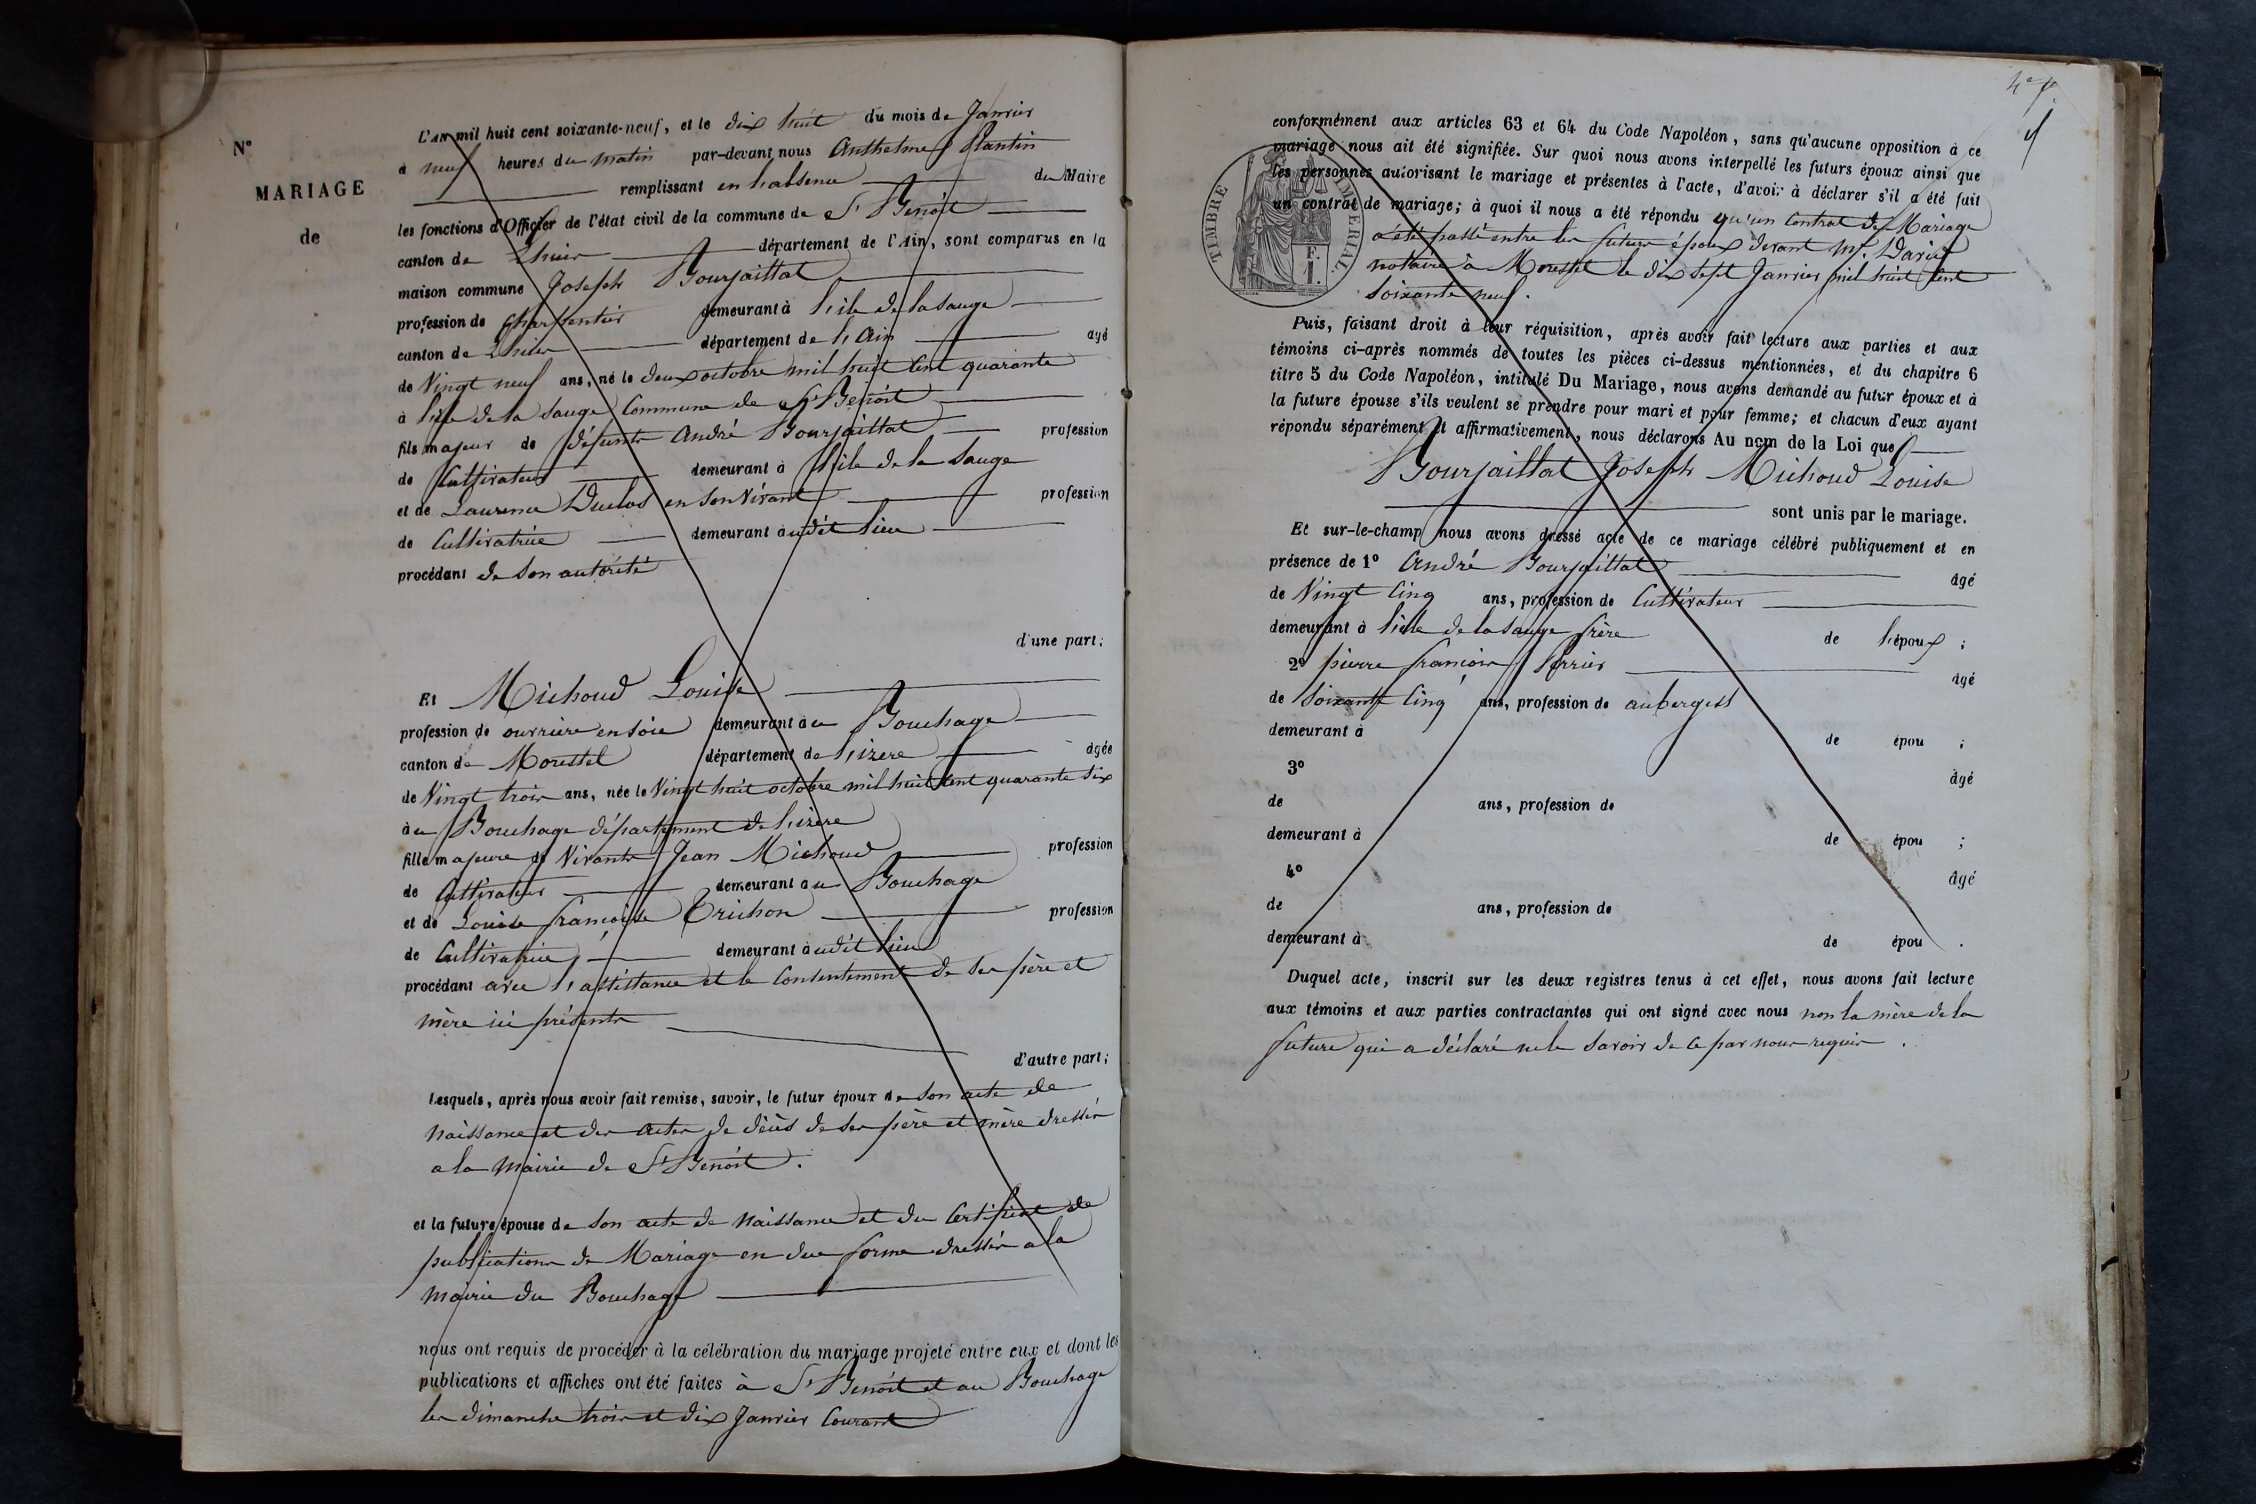 N°
MARIAGE
de
L'AN mil huit cent soixante-neuf, et le dix huit du mois de Janvier
à neuf heures du matin par-devant nous Anthelme Plantin
remplissant en l'absence du Maire
les fonctions d'Officier de l'état civil de la commune de St Benoit
canton de Lhuis département de l'Ain, sont comparus en la
maison commune Joseph Bourjaillat
profession de charpentier demeurant à l'ile de la Sauge
canton de Lhuis département de l'Ain agé
de Vingt neuf ans, né le deux octobre mil huit cent quarante
à l'ile de la Sauge Commune de St Benoit
fils majeur de défunts André Bourjaillat profession
de Cultivateur demeurant à l'ile de la Sauge
et de Laurence Duclos en son Vivant profession
de Cultivatrice demeurant audit lieu
procédant de son autorité
d'une part;
Et Michoud Louise
profession de ouvrière en soie demeurant au Bouchage
canton de Morestel département de l'izère agée
de Vingt trois ans, née le Vingt huit octobre mil huit cent quarante six
au Bouchage département de l'izère
fille majeure de Vivants Jean Michoud profession
de Cultivateur demeurant au Bouchage
et de Louise françoise Trichon profession
de Cultivatrice demeurant audit lieu
procédant avec l'assistance et le Consentement de ses père et
mère ici présents
d'autre part;
Lesquels, après nous avoir fait remise, savoir, le futur époux de son acte de
Naissance et des actes de décès de ses père et mère dressés
a la Mairie de St Benoit.
et la future épouse de son acte de Naissance et du Certificat de
publications de Mariage en due forme dressés a la
Mairie du Bouchage
nous ont requis de procéder à la célébration du mariage projeté entre eux et dont les
publications et affiches ont été faites à St Benoit et au Bouchage
les dimanche trois et dix Janvier Courant
4e
conformément aux articles 63 et 64 du Code Napoléon, sans qu'aucune opposition à ce
mariage nous ait été signifiée. Sur quoi nous avons interpellé les futurs époux ainsi que
les personnes autorisant le mariage et présentes à l'acte, d'avoir à déclarer s'il a été fait
un contrat de mariage; à quoi il nous a été répondu qu'un Contrat de Mariage
a été passé entre les futurs époux devant Me. David
notaire à Morestel le dix sept Janvier mil huit cent
soixante neuf.
TIMBRE IMPERIAL
F.
1.
Puis, faisant droit à leur réquisition, après avoir fait lecture aux parties et aux
témoins ci-après nommés de toutes les pièces ci-dessus mentionnées, et du chapitre 6
titre 5 du Code Napoléon, intitulé Du Mariage, nous avons demandé au futur époux et à
la future épouse s'ils veulent se prendre pour mari et pour femme; et chacun d'eux ayant
répondu séparément et affirmativement, nous déclarons Au nom de la Loi que
Bourjaillat Joseph Michoud Louise
sont unis par le mariage.
Et sur-le-champ nous avons dressé acte de ce mariage célébré publiquement et en
présence de 1° André Bourjaillat âgé
de Vingt Cinq ans, profession de Cultivateur
demeurant à l'isle de la Sauge frère de l'époux;
2° pierre françois Perrier âgé
de Soixante Cinq ans, profession de aubergist
demeurant à de épou ;
3° âgé
de ans, profession de
demeurant à de épou ;
4° âgé
de ans, profession de
demeurant à de épou .
Duquel acte, inscrit sur les deux registres tenus à cet effet, nous avons fait lecture
aux témoins et aux parties contractantes qui ont signé avec nous non la mère de la
future qui a déclaré ne le savoir de ce par nous requis.